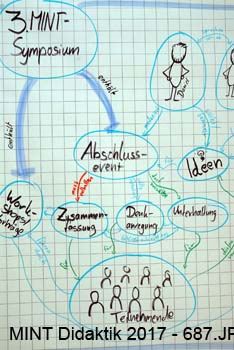 3. MINT-
Symposium
enthält
enthält
Abschluss-
event
Ideen
Work-
shops/
Zusammen-
fassung
Denk-
anregung
Unterhaltung
Teilnehmende
MINT Didaktik 2017 - 687.JP